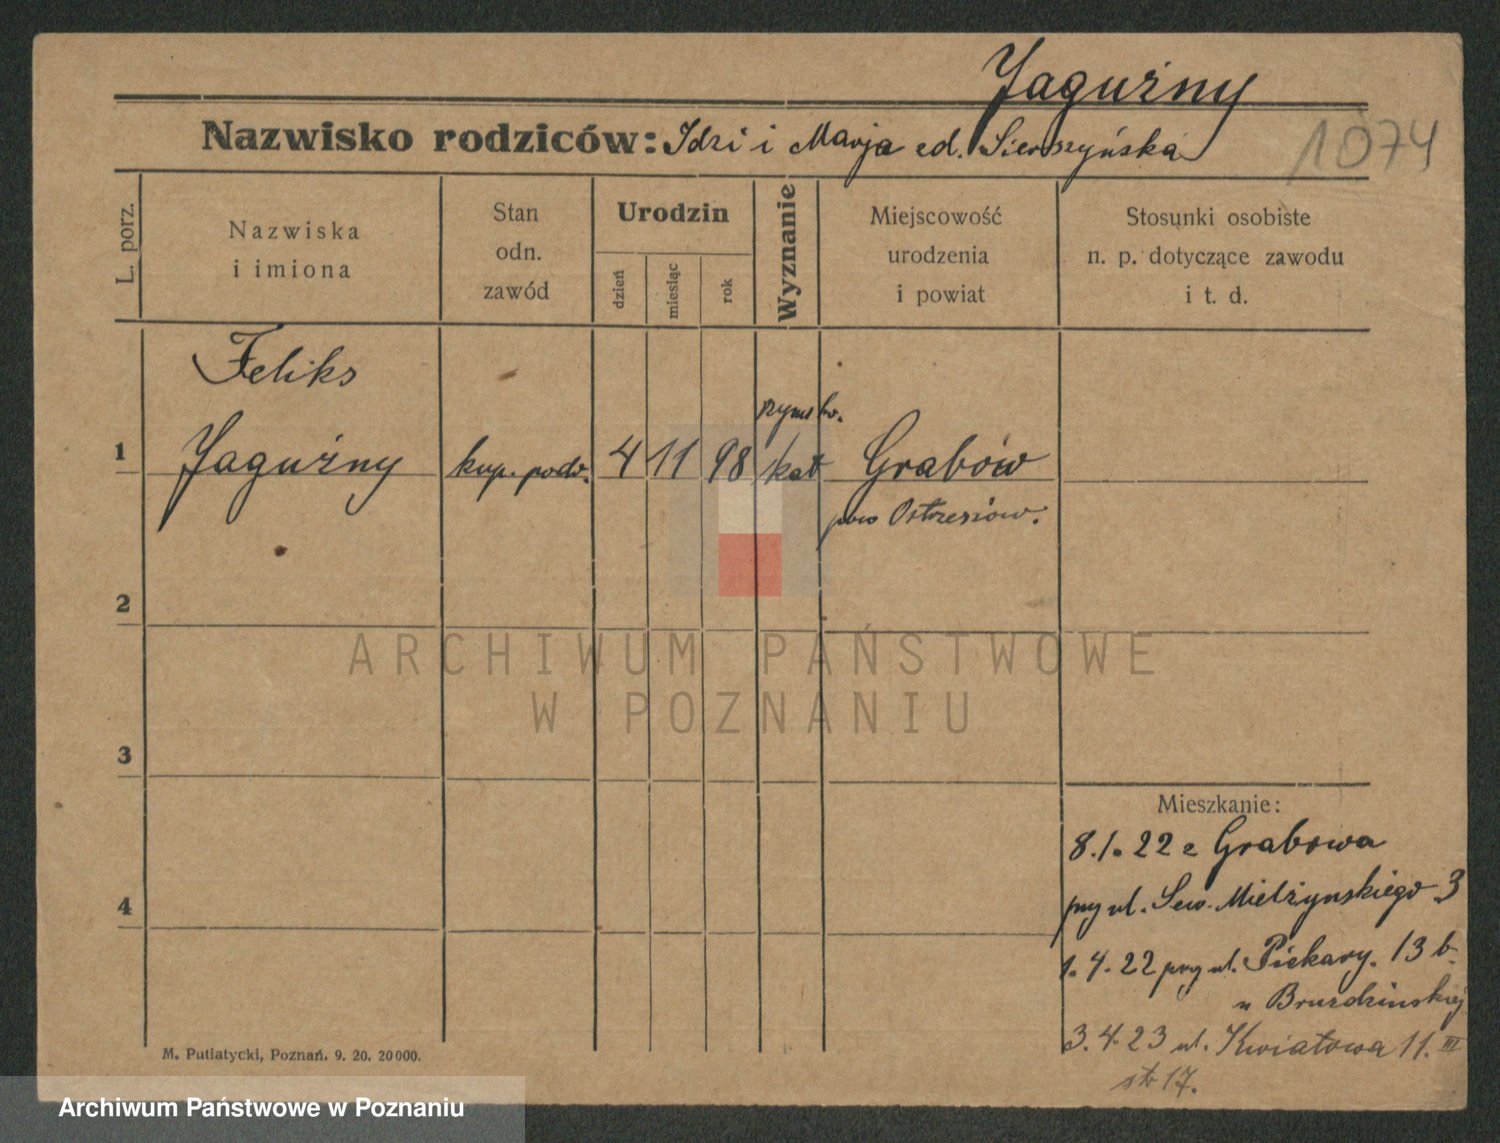 Jaguźny
Nazwisko rodziców: Idzi i Marja zd. Sierszyńska
1074
L. porz.
Nazwiska
i imiona
Stan
odn.
zawód
Urodzin
dzień
miesiąc
rok
Wyznanie
Miejscowość
urodzenia
i powiat
Stosunki osobiste
n. p. dotyczące zawodu
i t. d.
Feliks
1 Jaguźny kup. podr. 4 11 98 rzyms ko. kat Grabów
pow Ostrzeszów.
2
ARCHIWUM PAŃSTWOWE
W POZNANIU
3
Mieszkanie:
8.1.22 z Grabowa
4
przy ul. Sew. Mielżynskiego 3
1.4.22 przy ul. Piekary. 13 b.
u Bruzdzinskiej
3.4.23 ul. Kwiatowa 11. III
str 17.
M. Putiatycki, Poznań. 9. 20. 20000.
Archiwum Państwowe w Poznaniu